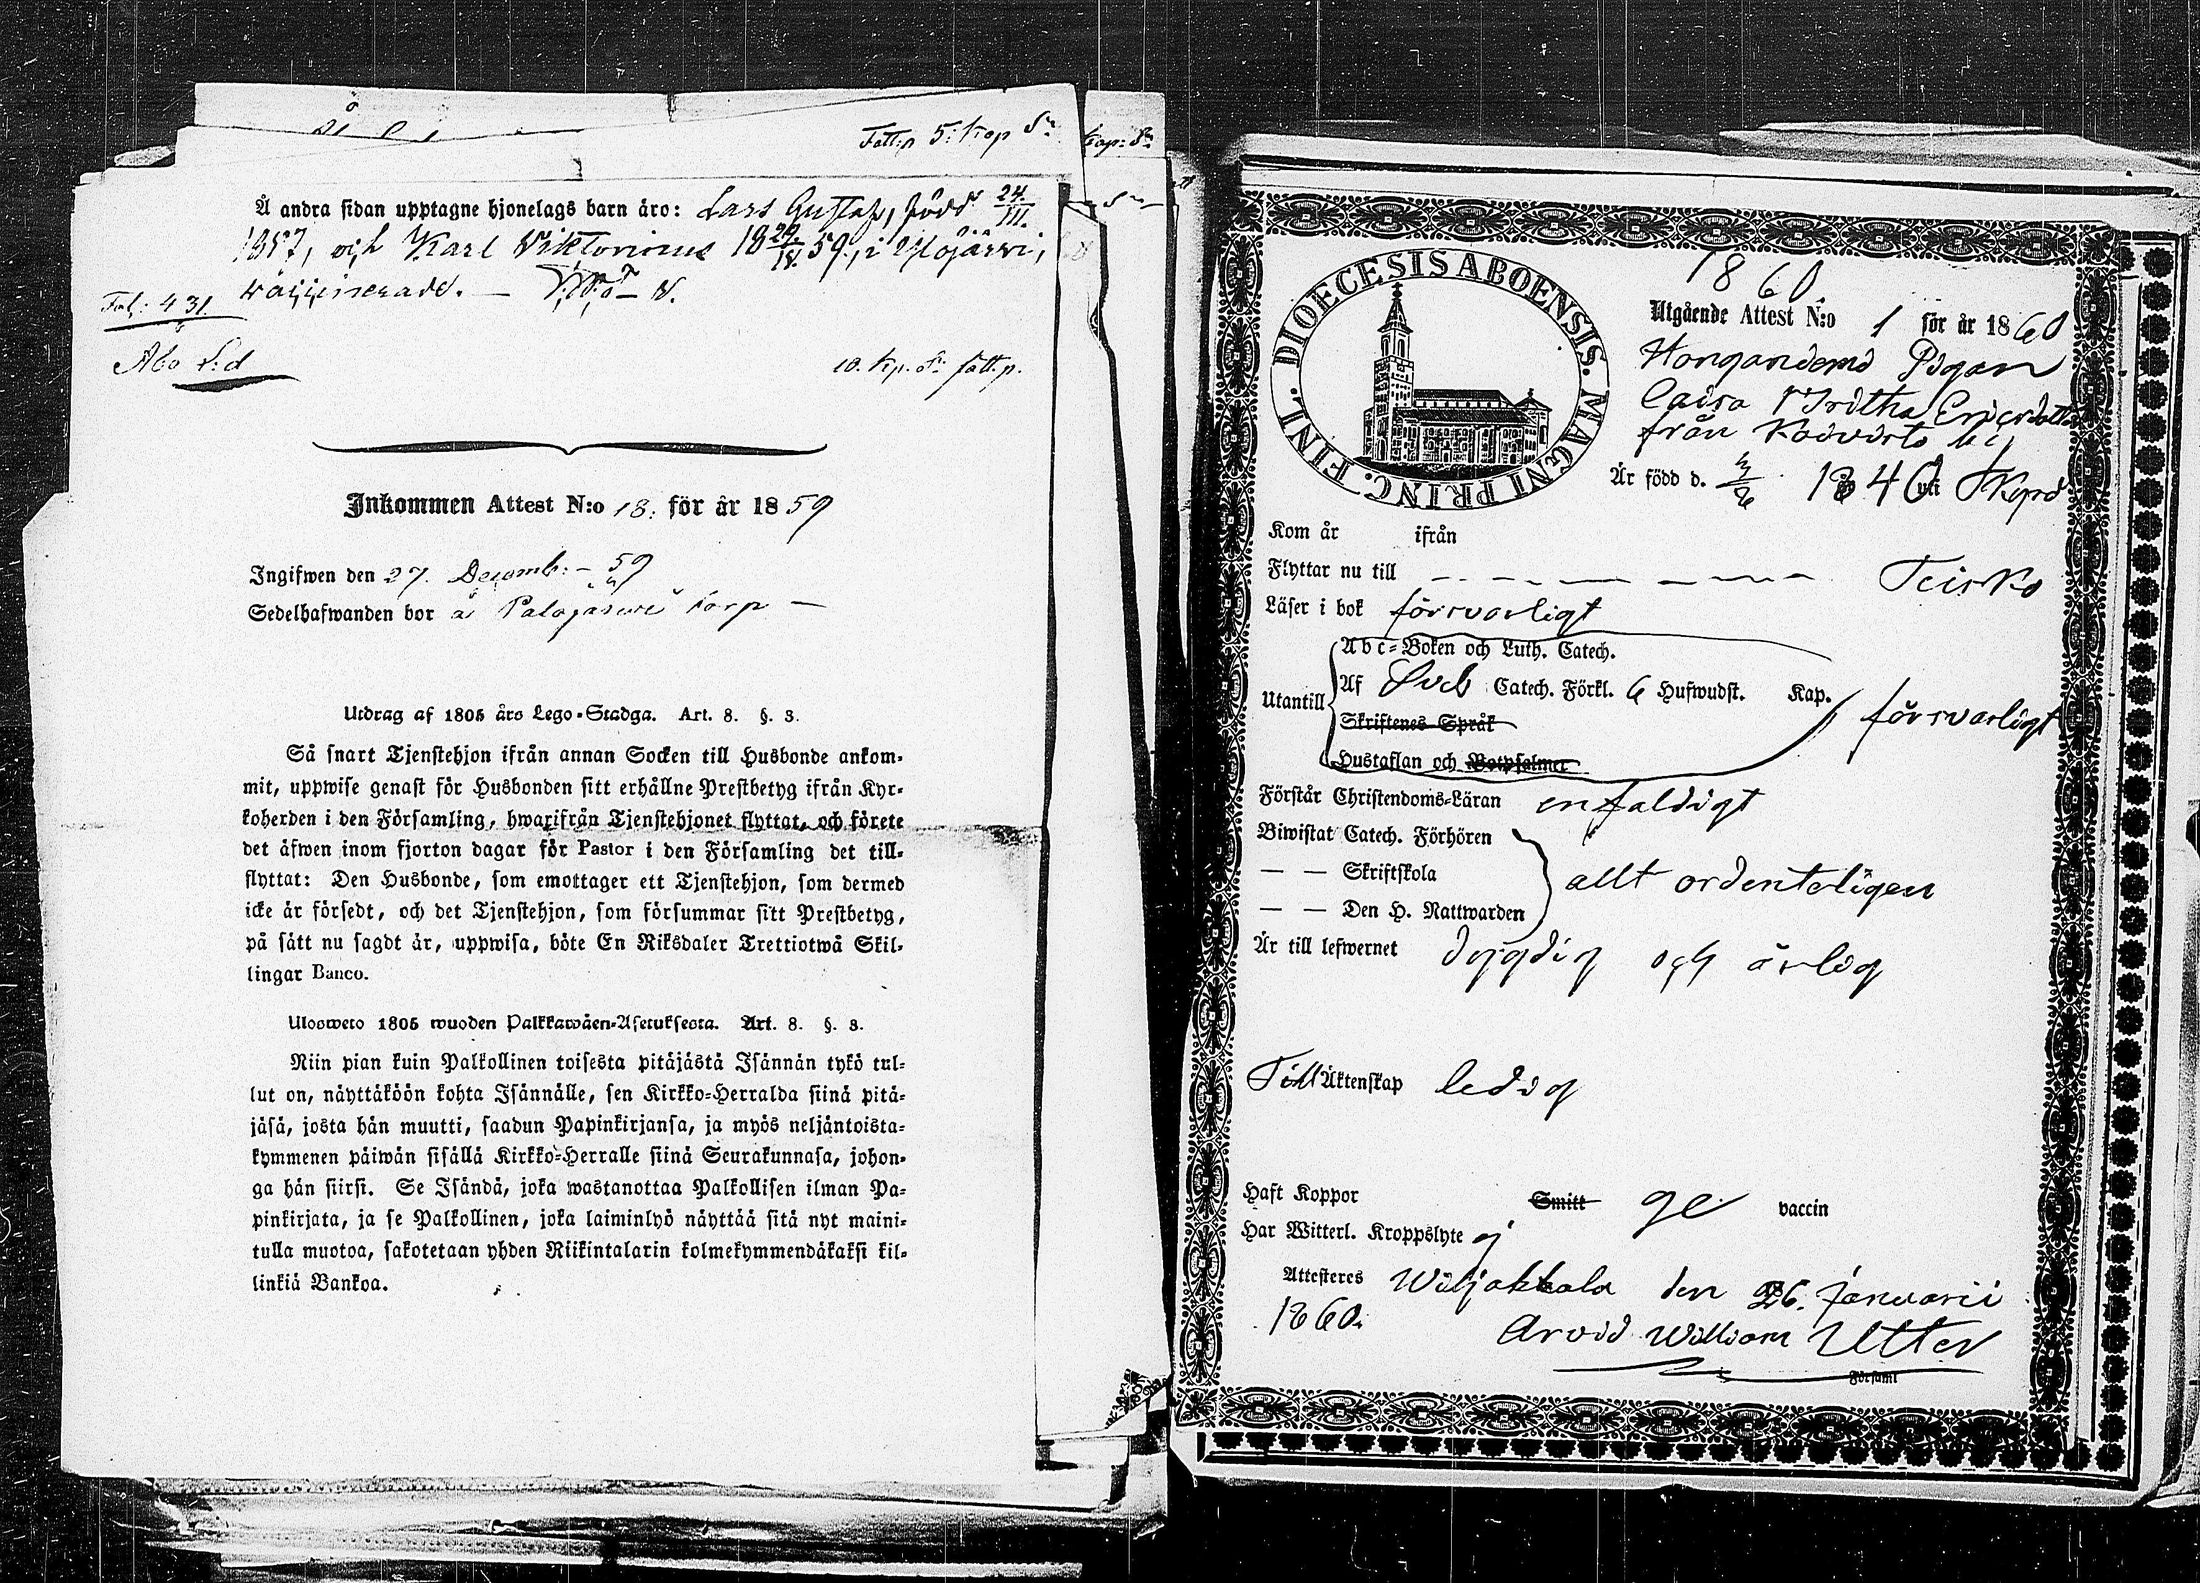 Fatt:p 5: Kop Sr
Kop: Sr
Å andra sidan upptagne hjonelags barn äro: Lars Gustaf, född 24/III.
1857, och Karl Viktorinus 18 29/IV. 59, i Ylöjärvi,
vaccinerade. —
Fol: 431
Abo S:d
10. Kp. Sr fatt.p.
Inkommen Attest N:o 18: för år 1859
Ingifwen den 27. Decemb: – 59
Sedelhafwanden bor å Palojärvi torp —
Utdrag af 1805 års Lego-Stadga. Art. 8. §. 3.
Så snart Tjenstehjon ifrån annan Socken till Husbonde ankom-
mit, uppwise genast för Husbonden sitt erhållne Prestbetyg ifrån Kyr-
koherden i den Församling, hwarifrån Tjenstehjonet flyttat, och förete
det äfwen inom fjorton dagar för Pastor i den Församling det till-
flyttat: Den Husbonde, som emottager ett Tjenstehjon, som dermed
icke är försedt, och det Tjenstehjon, som försummar sitt Prestbetyg,
på sätt nu sagdt är, uppwisa, böte En Riksdaler Trettiotwå Skil-
lingar Banco.
Ulosweto 1805 wuoden Palkkawäen-Asetuksesta. Art. 8. §. 3.
Niin pian kuin Palkollinen toisesta pitäjästä Isännän tykö tul-
lut on, näyttäköön kohta Isännälle, sen Kirkko-Herralda siinä pitä-
jäsä, josta hän muutti, saadun Papinkirjansa, ja myös neljäntoista-
kymmenen päiwän sisällä Kirkko-Herralle siinä Seurakunnasa, johon-
ga hän siirsi. Se Isändä, joka wastanottaa Palkollisen ilman Pa-
pinkirjata, ja se Palkollinen, joka laiminlyö näyttää sitä nyt maini-
tulla muotoa, sakotetaan yhden Riikintalarin kolmekymmendäkaksi kil-
linkiä Bankoa.
DIOECESIS ABOENSIS. MAGNI PRINC. FINL.
1860.
Utgående Attest N:o 1 för år 1860
Pigan
Caisa Ericsdotter
från Koivisto by
Är född d. 1840 uti
Kom år ifrån
Flyttar nu till — — — — Teisko
Läser i bok försvarligt
Utantill
Abc-Boken och Luth. Catech.
Af Sveb Catech. Förkl. 6 Hufwudst. Kap.
Skriftenes Språk
Hustaflan och Botpsalmer
försvarligt
Förstår Christendoms-Läran enfaldigt
Biwistat Catech. Förhören
— — Skriftskola
— — Den H. Nattwarden
allt ordenteligen
Är till lefwernet dygdig och ärlig
Till Äktenskap ledig
Haft Koppor Smitt ge vaccin
Har Witterl. Kroppslyte ej
Attesteres Wiljakkala den 26. Januarii
1860.
Arvid William Utter
Församl